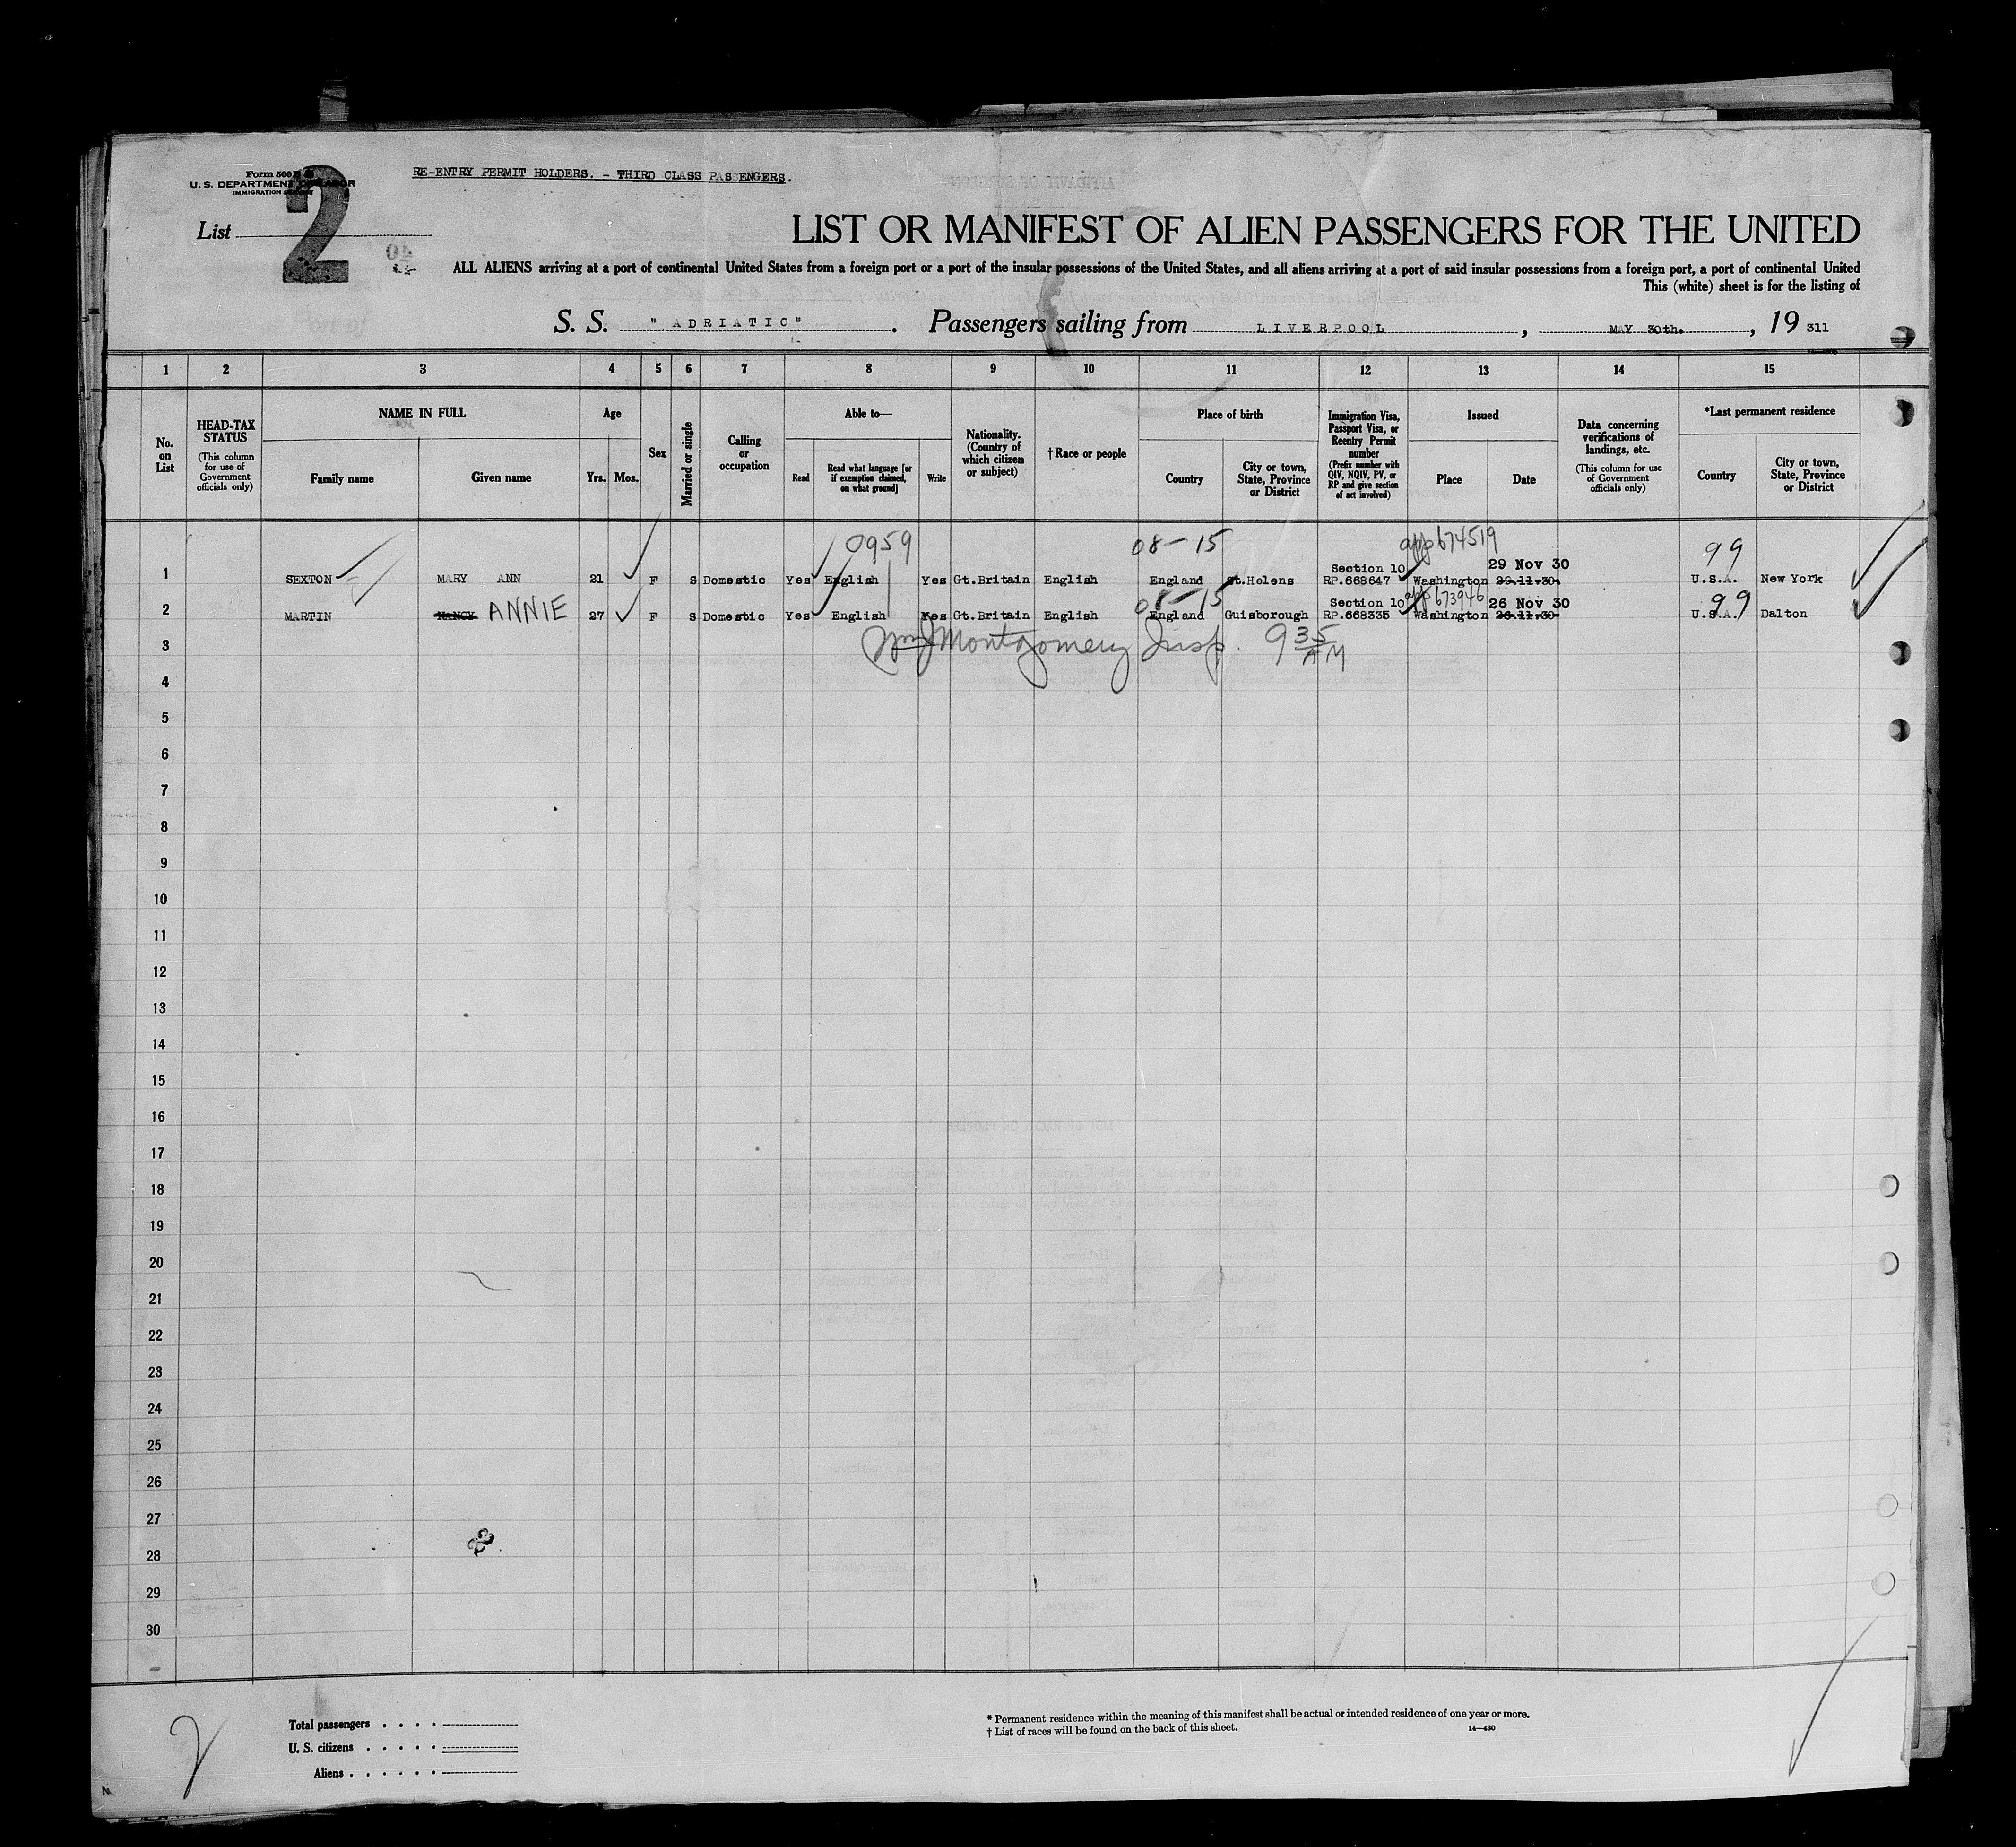 Form 500
U. S. DEPARTMENT OF LABOR
IMMIGRATION SERVICE
RE-ENTRY PERMIT HOLDERS. - THIRD CLASS PASSENGERS.
List
2
LIST OR MANIFEST OF ALIEN PASSENGERS FOR THE UNITED
ALL ALIENS arriving at a port of continental United States from a foreign port or a port of the insular possessions of the United States, and all aliens arriving at a port of said insular possessions from a foreign port, a port of continental United
This (white) sheet is for the listing of
S. S. " ADRIATIC" . Passengers sailing from LIVERPOOL , MAY 30th. , 19 311
1 2 3 4 5 6 7 8 9 10 11 12 13 14 15
No. on List
HEAD-TAX STATUS (This column for use of Government officials only)
NAME IN FULL
Family name Given name
Age
Yrs. Mos.
Sex
Married or single
Calling or occupation
Able to—
Read Read what language [or if exemption claimed, on what ground] Write
Nationality. (Country of which citizen or subject)
†Race or people
Place of birth
Country City or town, State, Province or District
Immigration Visa, Passport Visa, or Reentry Permit number (Prefix number with QIV, NQIV, PV, or RP and give section of act involved)
Issued
Place Date
Data concerning verifications of landings, etc. (This column for use of Government officials only)
*Last permanent residence
Country City or town, State, Province or District
0959 08-15 app 674519 99
Section 10 29 Nov 30
1 SEXTON MARY ANN 21 F S Domestic Yes English Yes Gt.Britain English England St.Helens RP.668647 Washington 29.11.30. U.S.A. New York
08-15 Section 10 app 673946 26 Nov 30 99
2 MARTIN NANCY ANNIE 27 F S Domestic Yes English Yes Gt.Britain English England Guisborough RP.668335 Washington 26.11.30 U.S.A. Dalton
3 Wm J Montgomery Insp. 9 35 AM
4
5
6
7
8
9
10
11
12
13
14
15
16
17
18
19
20
21
22
23
24
25
26
27
28
29
30
2
Total passengers . . . .
U. S. citizens . . . . .
Aliens . . . . . .
* Permanent residence within the meaning of this manifest shall be actual or intended residence of one year or more.
† List of races will be found on the back of this sheet.
14—430